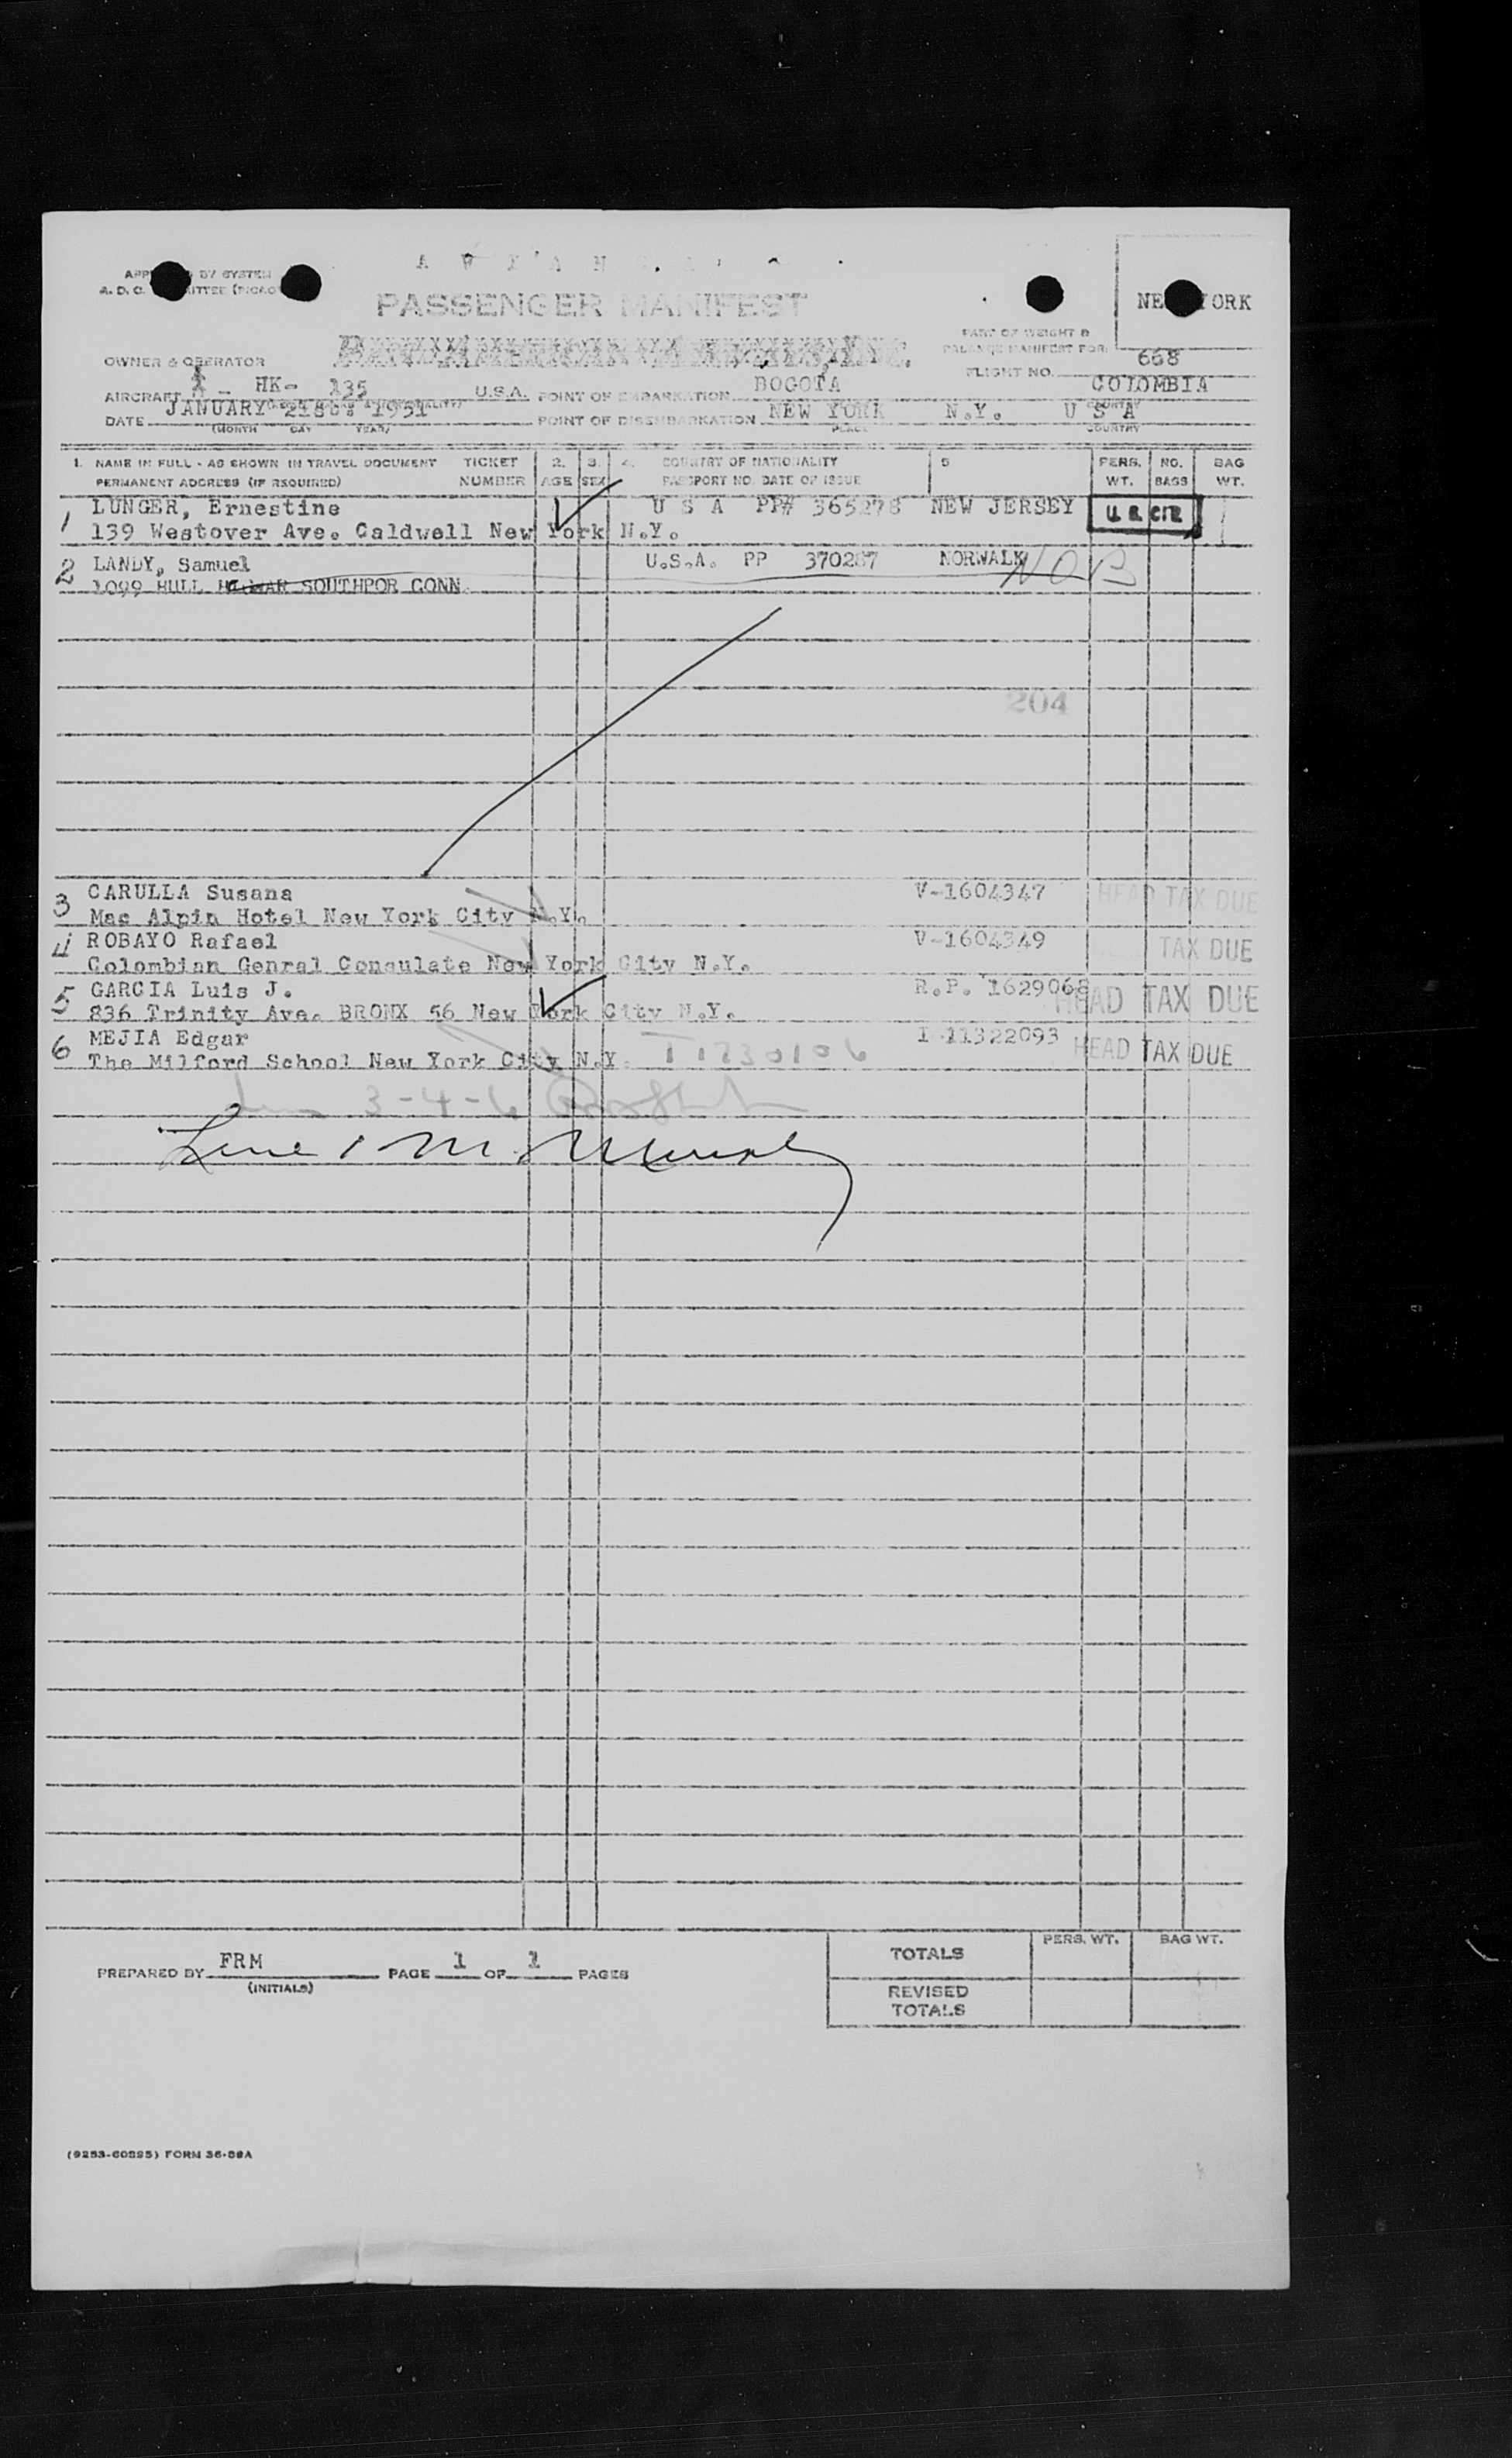 A V I A N C A
PASSENGER MANIFEST
NEW YORK
OWNER & OPERATOR
PAN AMERICAN
FLIGHT NO. 668
AIRCRAFT HK- 135 U.S.A. POINT OF EMBARKATION BOGOTA COLOMBIA
DATE JANUARY 21st: 1951 POINT OF DISEMBARKATION NEW YORK N.Y. U S A
(MONTH DAY YEAR) PLACE COUNTRY
1. NAME IN FULL - AS SHOWN IN TRAVEL DOCUMENT TICKET 2. 3. 4. COUNTRY OF NATIONALITY 5 PERS. NO. BAG
PERMANENT ADDRESS (IF REQUIRED) NUMBER AGE SEX PASSPORT NO. DATE OF ISSUE WT. BAGS WT.
1 LUNGER, Ernestine U S A PP# 365278 NEW JERSEY U.S. CIT.
139 Westover Ave. Caldwell New York N.Y.
2 LANDY, Samuel U.S.A. PP 370287 NORWALK NOB
1099 HULL SOUTHPOR CONN.
204
3 CARULLA Susana V-1604347 HEAD TAX DUE
Mac Alpin Hotel New York City N.Y.
4 ROBAYO Rafael V-1604349 TAX DUE
Colombian Genral Consulate New York City N.Y.
5 GARCIA Luis J. R.P. 1629068 HEAD TAX DUE
836 Trinity Ave. BRONX 56 New York City N.Y.
6 MEJIA Edgar I-11322093 HEAD TAX DUE
The Milford School New York City N.Y.
3-4-6
PREPARED BY FRM PAGE 1 OF 1 PAGES
(INITIALS)
TOTALS PERS. WT. BAG WT.
REVISED
TOTALS